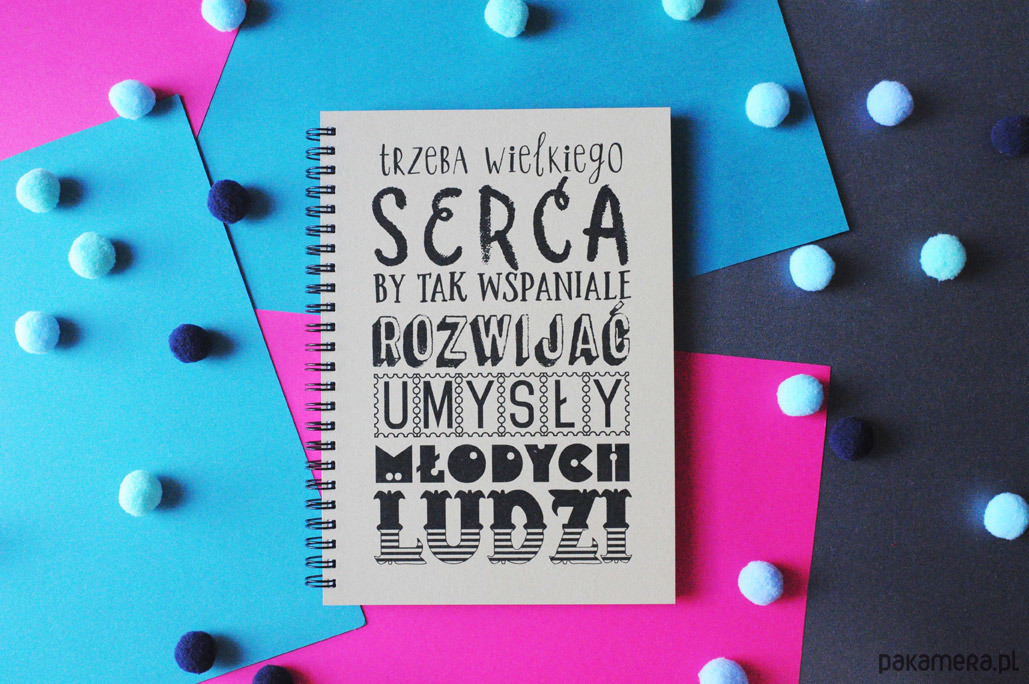 trzeba wielkiego
SERCA
BY TAK WSPANIALE
ROZWIJAĆ
UMYSŁY
MŁODYCH
LUDZI
pakamera.pl